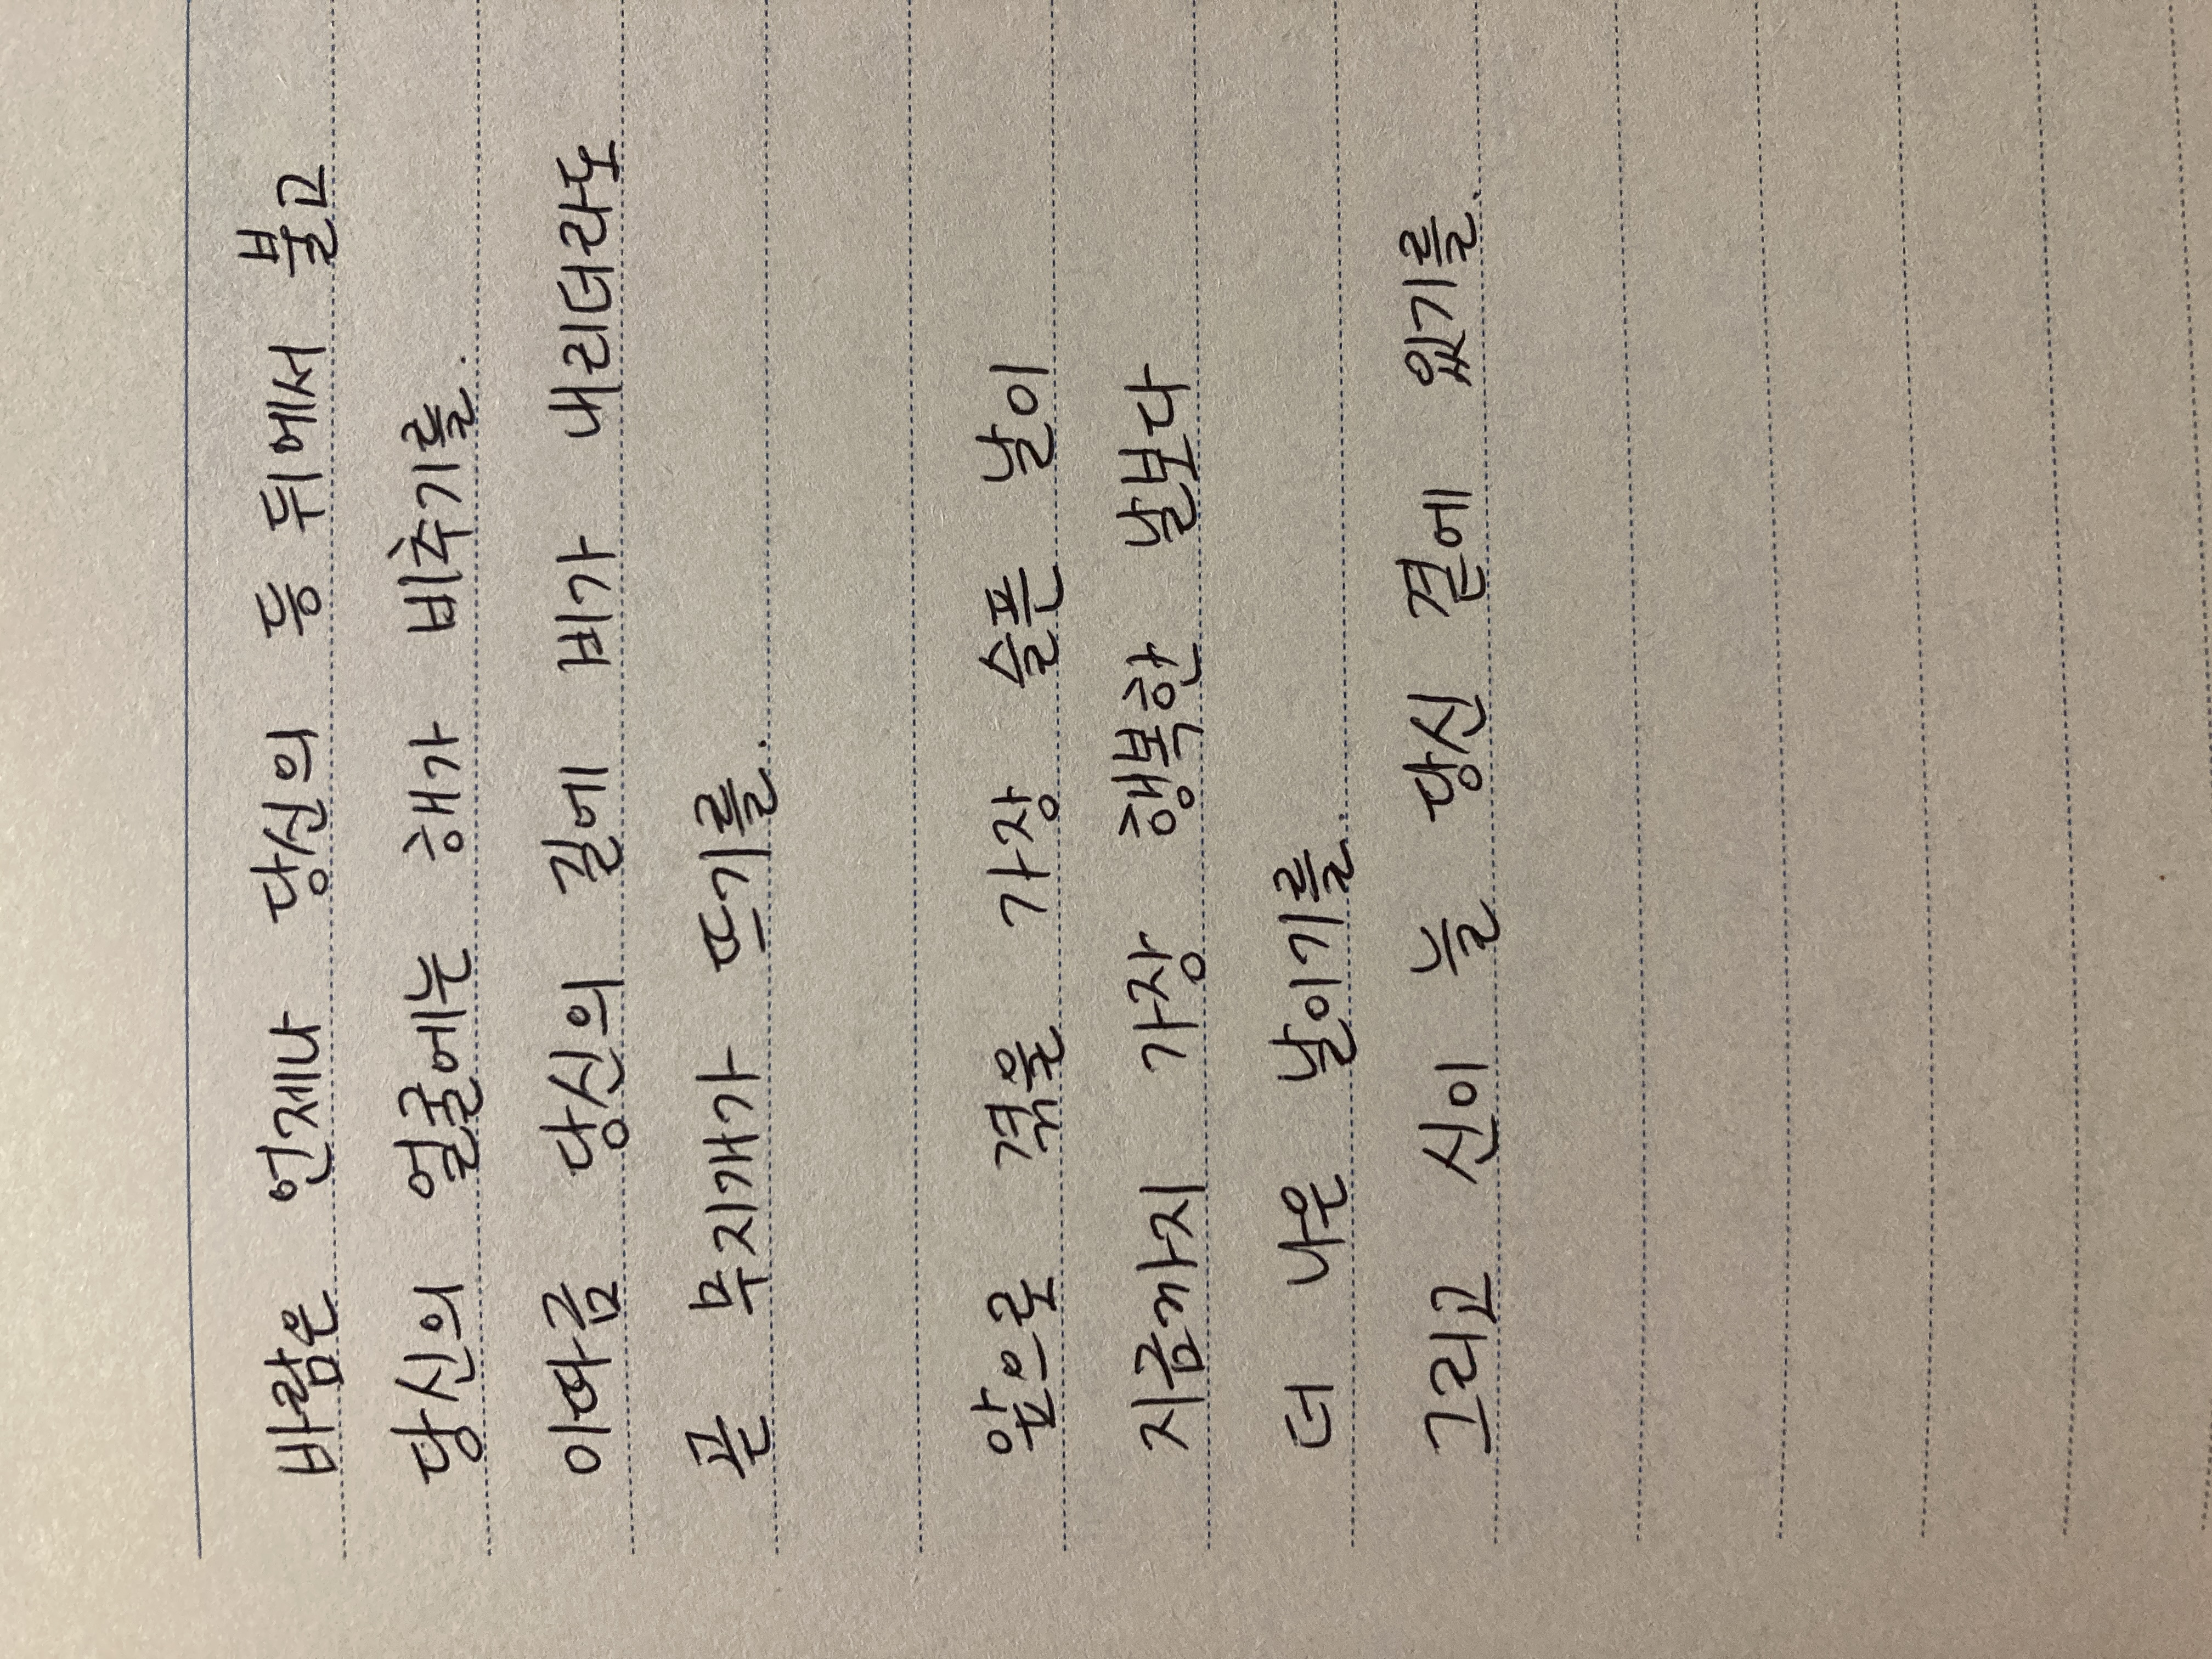 바람은 언제나 당신의 등 뒤에서 불고
당신의 얼굴에는 해가 비추기를.
이따금 당신의 길에 비가 내리더라도
곧 무지개가 뜨기를.
앞으로 겪을 가장 슬픈 날이
지금까지 가장 행복한 날보다
더 나은 날이기를.
그리고 신이 늘 당신 곁에 있기를.